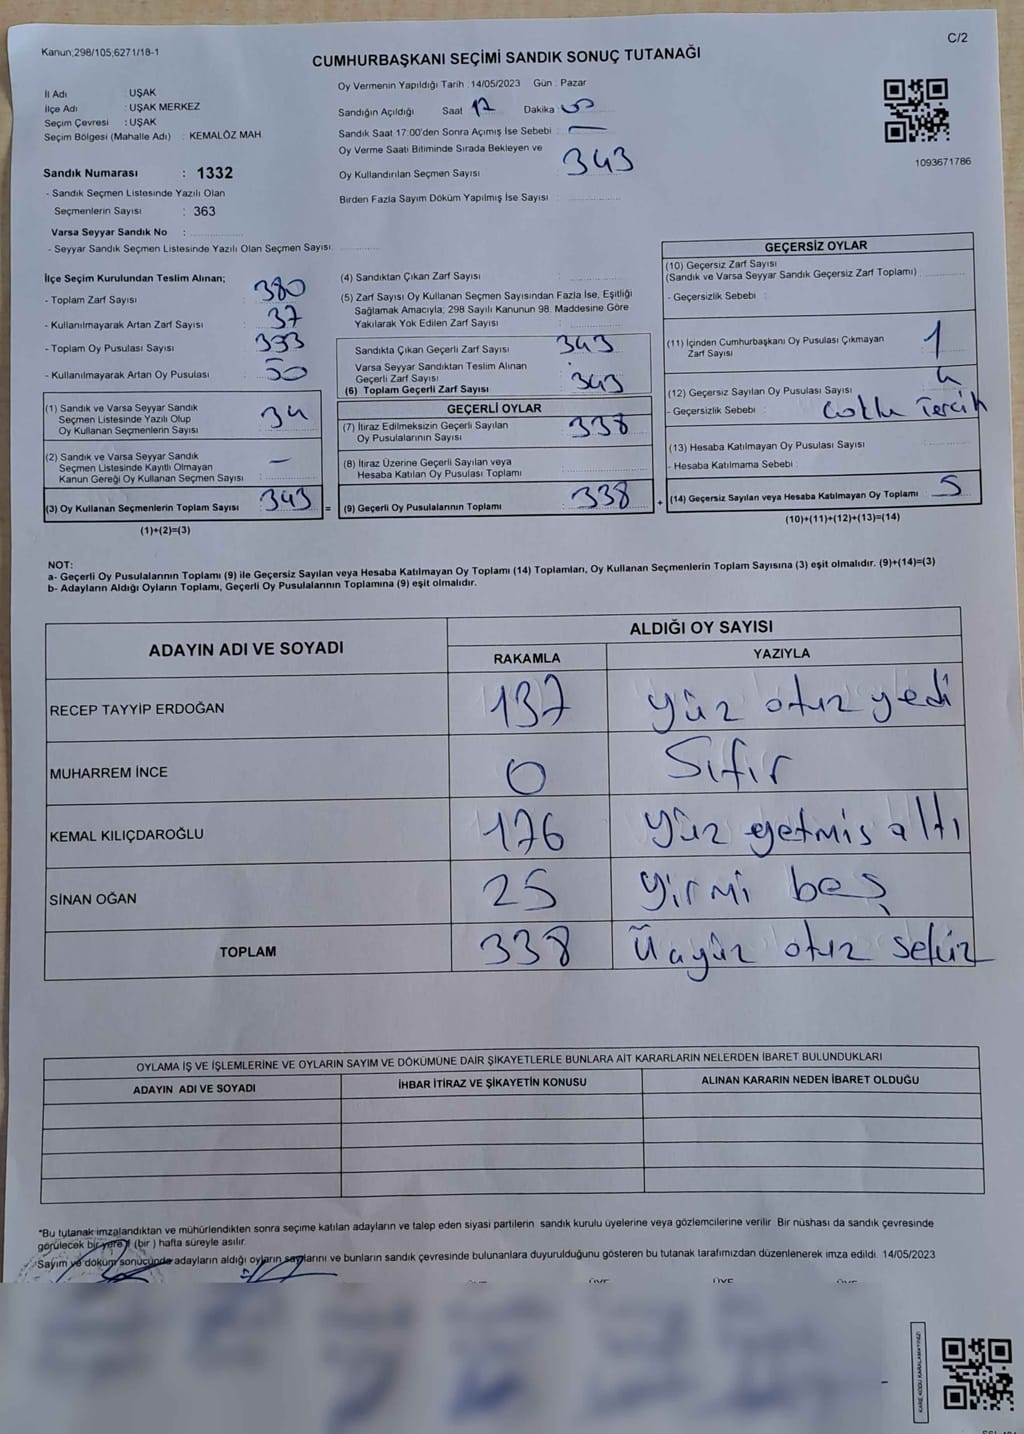 Kanun;298/105;6271/18-1
C/2
CUMHURBAŞKANI SEÇİMİ SANDIK SONUÇ TUTANAĞI
İl Adı : UŞAK
İlçe Adı : UŞAK MERKEZ
Seçim Çevresi : UŞAK
Seçim Bölgesi (Mahalle Adı) : KEMALÖZ MAH.
Sandık Numarası : 1332
- Sandık Seçmen Listesinde Yazılı Olan
Seçmenlerin Sayısı : 363
Varsa Seyyar Sandık No :
- Seyyar Sandık Seçmen Listesinde Yazılı Olan Seçmen Sayısı:
Oy Vermenin Yapıldığı Tarih : 14/05/2023 Gün : Pazar
Sandığın Açıldığı Saat 17 Dakika :
Sandık Saat 17:00'den Sonra Açımış İse Sebebi : —
Oy Verme Saati Bitiminde Sırada Bekleyen ve
Oy Kullandırılan Seçmen Sayısı : 343
Birden Fazla Sayım Döküm Yapılmış İse Sayısı :
1093671786
İlçe Seçim Kurulundan Teslim Alınan;
- Toplam Zarf Sayısı : 380
- Kullanılmayarak Artan Zarf Sayısı : 37
- Toplam Oy Pusulası Sayısı :
- Kullanılmayarak Artan Oy Pusulası : 50
(1) Sandık ve Varsa Seyyar Sandık
Seçmen Listesinde Yazılı Olup
Oy Kullanan Seçmenlerin Sayısı : 34
(2) Sandık ve Varsa Seyyar Sandık
Seçmen Listesinde Kayıtlı Olmayan
Kanun Gereği Oy Kullanan Seçmen Sayısı : —
(3) Oy Kullanan Seçmenlerin Toplam Sayısı : 343 =
(1)+(2)=(3)
(4) Sandıktan Çıkan Zarf Sayısı :
(5) Zarf Sayısı Oy Kullanan Seçmen Sayısından Fazla İse, Eşitliği
Sağlamak Amacıyla; 298 Sayılı Kanunun 98. Maddesine Göre
Yakılarak Yok Edilen Zarf Sayısı :
Sandıkta Çıkan Geçerli Zarf Sayısı : 343
Varsa Seyyar Sandıktan Teslim Alınan
Geçerli Zarf Sayısı
(6) Toplam Geçerli Zarf Sayısı : 343
GEÇERLİ OYLAR
(7) İtiraz Edilmeksizin Geçerli Sayılan
Oy Pusulalarının Sayısı : 338
(8) İtiraz Üzerine Geçerli Sayılan veya
Hesaba Katılan Oy Pusulası Toplamı :
(9) Geçerli Oy Pusulalarının Toplamı : 338 +
GEÇERSİZ OYLAR
(10) Geçersiz Zarf Sayısı
(Sandık ve Varsa Seyyar Sandık Geçersiz Zarf Toplamı) :
- Geçersizlik Sebebi :
(11) İçinden Cumhurbaşkanı Oy Pusulası Çıkmayan
Zarf Sayısı : 1
(12) Geçersiz Sayılan Oy Pusulası Sayısı : 4
- Geçersizlik Sebebi : Çoklu Tercih
(13) Hesaba Katılmayan Oy Pusulası Sayısı :
- Hesaba Katılmama Sebebi :
(14) Geçersiz Sayılan veya Hesaba Katılmayan Oy Toplamı : 5
(10)+(11)+(12)+(13)=(14)
NOT:
a- Geçerli Oy Pusulalarının Toplamı (9) ile Geçersiz Sayılan veya Hesaba Katılmayan Oy Toplamı (14) Toplamları, Oy Kullanan Seçmenlerin Toplam Sayısına (3) eşit olmalıdır. (9)+(14)=(3)
b- Adayların Aldığı Oyların Toplamı, Geçerli Oy Pusulalarının Toplamına (9) eşit olmalıdır.
ADAYIN ADI VE SOYADI
ALDIĞI OY SAYISI
RAKAMLA YAZIYLA
RECEP TAYYİP ERDOĞAN 137 yüz otuz yedi
MUHARREM İNCE 0 Sıfır
KEMAL KILIÇDAROĞLU 176 yüz yetmiş altı
SİNAN OĞAN 25 yirmi beş
TOPLAM 338 Üçyüz otuz sekiz
OYLAMA İŞ VE İŞLEMLERİNE VE OYLARIN SAYIM VE DÖKÜMÜNE DAİR ŞİKAYETLERLE BUNLARA AİT KARARLARIN NELERDEN İBARET BULUNDUKLARI
ADAYIN ADI VE SOYADI İHBAR İTİRAZ VE ŞİKAYETİN KONUSU ALINAN KARARIN NEDEN İBARET OLDUĞU
*Bu tutanak imzalandıktan ve mühürlendikten sonra seçime katılan adayların ve talep eden siyasi partilerin sandık kurulu üyelerine veya gözlemcilerine verilir. Bir nüshası da sandık çevresinde
görülecek bir yere 1 (bir ) hafta süreyle asılır.
Sayım ve döküm sonucunda adayların aldığı oyların sayılarını ve bunların sandık çevresinde bulunanlara duyurulduğunu gösteren bu tutanak tarafımızdan düzenlenerek imza edildi. 14/05/2023
KARE KODU KARALAMAYINIZ!